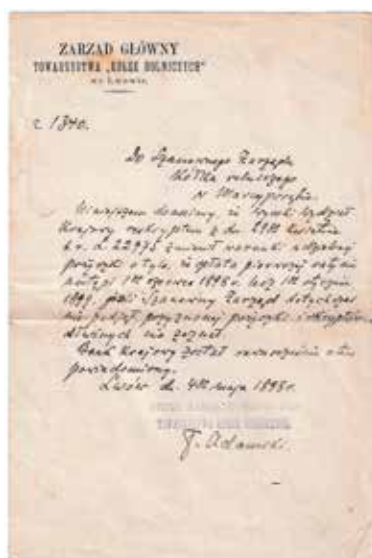 ZARZĄD GŁÓWNY
TOWARZYSTWA „KÓŁEK ROLNICZYCH"
we Lwowie.
L 1340.
Do Szanownego Zarządu
Kółka rolniczego
w
Niniejszem donosimy, iż Wysoki Wydział
Krajowy reskryptem z dn. kwietnia
b. r. zmienił warunki
pożyczki o tyle, że spłata pierwszej raty
nastąpi czerwca 1898 r. lecz stycznia
1899, jeśli Szanowny Zarząd dotychczas
nie przyznanej pożyczki i skryptów
dłużnych nie zeznał.
Bank Krajowy został równocześnie o tem
powiadomiony.
Lwów d. maja 1898 r.
T. Adamski.